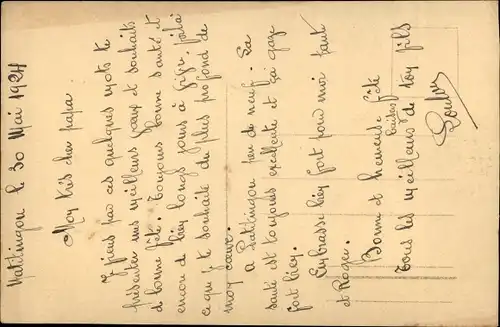 Mattincourt le 30 Mai 1924
Mon très cher papa
Je viens par ces quelques mots te
présenter mes meilleurs vœux et souhaits
de bonne fête. Toujours bonne santé et
encore de bien longs jours à vivre. Voilà
ce que je te souhaite du plus profond de
mon cœur.
A peu de neuf. La
santé est toujours excellente et ça gaze
fort bien.
Embrasse bien fort pour moi tante
et Roger.
Bonne et heureuse fête
Tous les meilleurs baisers de ton fils